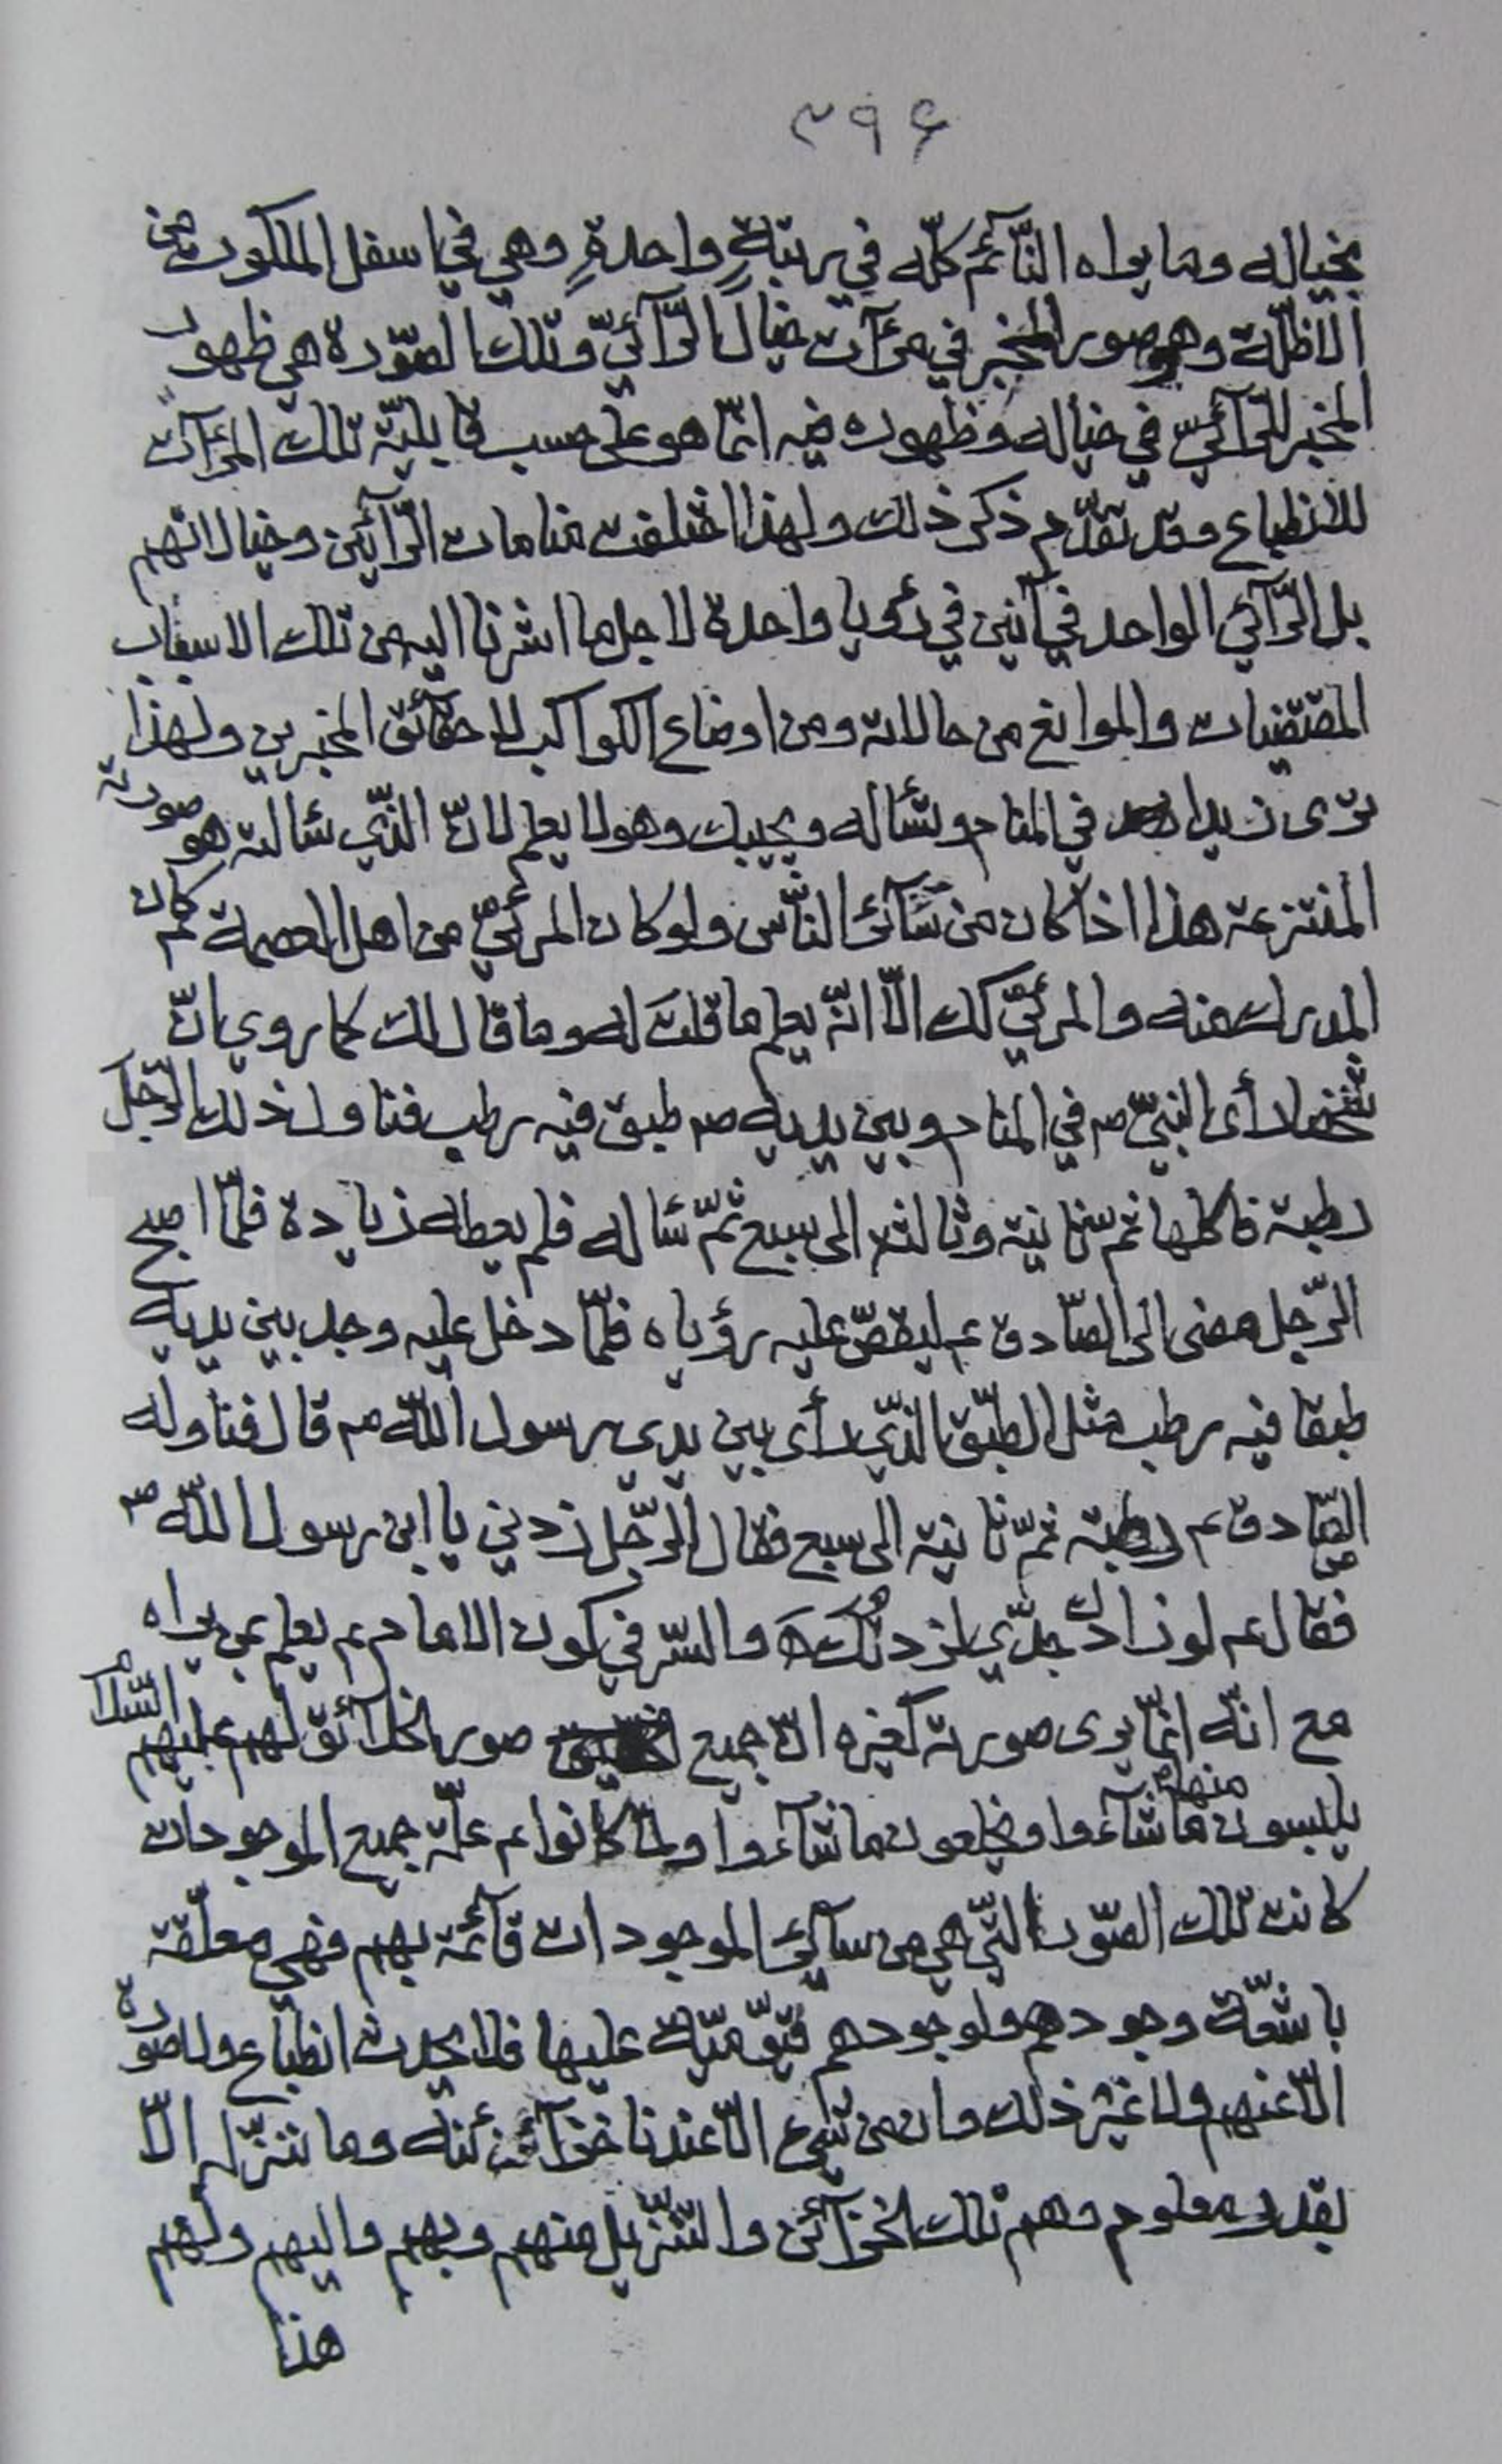 ٣٩۶
بخياله وما يراه النّآئم كلّه في رتبةٍ واحدةٍ وهي في اسفل الملكوت من
الاظلّة وهو صور المخبر في مرءآت خيال الرّآئيّ وتلك الصّورة هي ظهور
المخبر للرّآئيّ في خياله وظهوره فيه انّما هو على حسب قابليّة تلك المرءآت
للانطباع وقد تقدّم ذكر ذلك ولهذا اختلفت منامات الرّآئين وخيالاتهم
بل الرّآئي الواحد في آنين في رؤيا واحدة لاجل ما اشرنا اليه من تلك الاسباب
المقتضيات والموانع من حالاته ومن اوضاع الكواكب لا حقآئق المخبرين ولهذا
ترى زيدا في المنام وتسأله ويجيبك وهو لا يعلم لانّ الذّي سألته هو صورته
المنتزعة هذا اذا كان من سآئر النّاس ولو كان المرئيّ من اهل العصمة ثم كان
المدرك منه والمرئيّ كك الّا انّه يعلم ما قلتَ له وما قال لك كما روي انّ
شخصا رأى النبيّ ص في المنام وبين يديه ص طبق فيه رطب فناول ذلك الرّجل
رطبة فاكلها ثم ثانية وثالثة الى سبع ثمّ سأله فلم يعطه زيادة فلمّا اصبح
الرّجل مضى الى الصّادق ع ليقصّ عليه رؤياه فلمّا دخل عليه وجد بين يديه
طبقا فيه رطب مثل الطّبق الذّي رأى بين يدي رسول اللّه ص قال فناوله
الصّادق ع رطبة ثمّ ثانية الى سبع فقال الرّجل زدني يا ابن رسول اللّه ص
فقال ع لو زادك جدّي لزدتُكَ والسّر في كون الامام ع يعلم بمن يراه
مع انّه انّما يرى صورته كغيره انّ جميع صور الخلآئق لهم عليهم السّلام
يلبسون منها ما شآءوا ويخلعون ما شآءوا ولمّا كانوا ع علّة جميع الموجودات
كانت تلك الصّور التّي هي من سآئر الموجودات قآئمة بهم فهي معلّقة
باشعّة وجودهم ولوجودهم قيّوميّة عليها فلا يحدث انطباع ولا صورة
الّا عنهم ولا غير ذلك وان من شيء الّا عندنا خزآئنه وما ننزّله الّا
بقدر معلوم وهم تلك الخزآئن والتّنزيل منهم وبهم واليهم ولهم
هذا